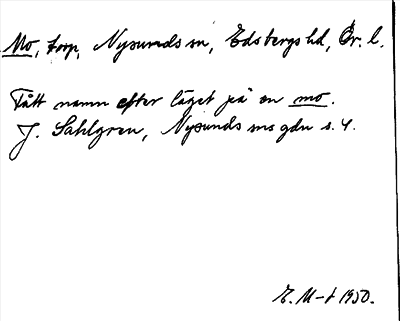 Mo, torp, Nysunds sn, Edsbergs hd, Ör. l.
Fått namn efter läget på en mo.
J. Sahlgren, Nysunds sns gdn s. 4.
E. M-t 1950.